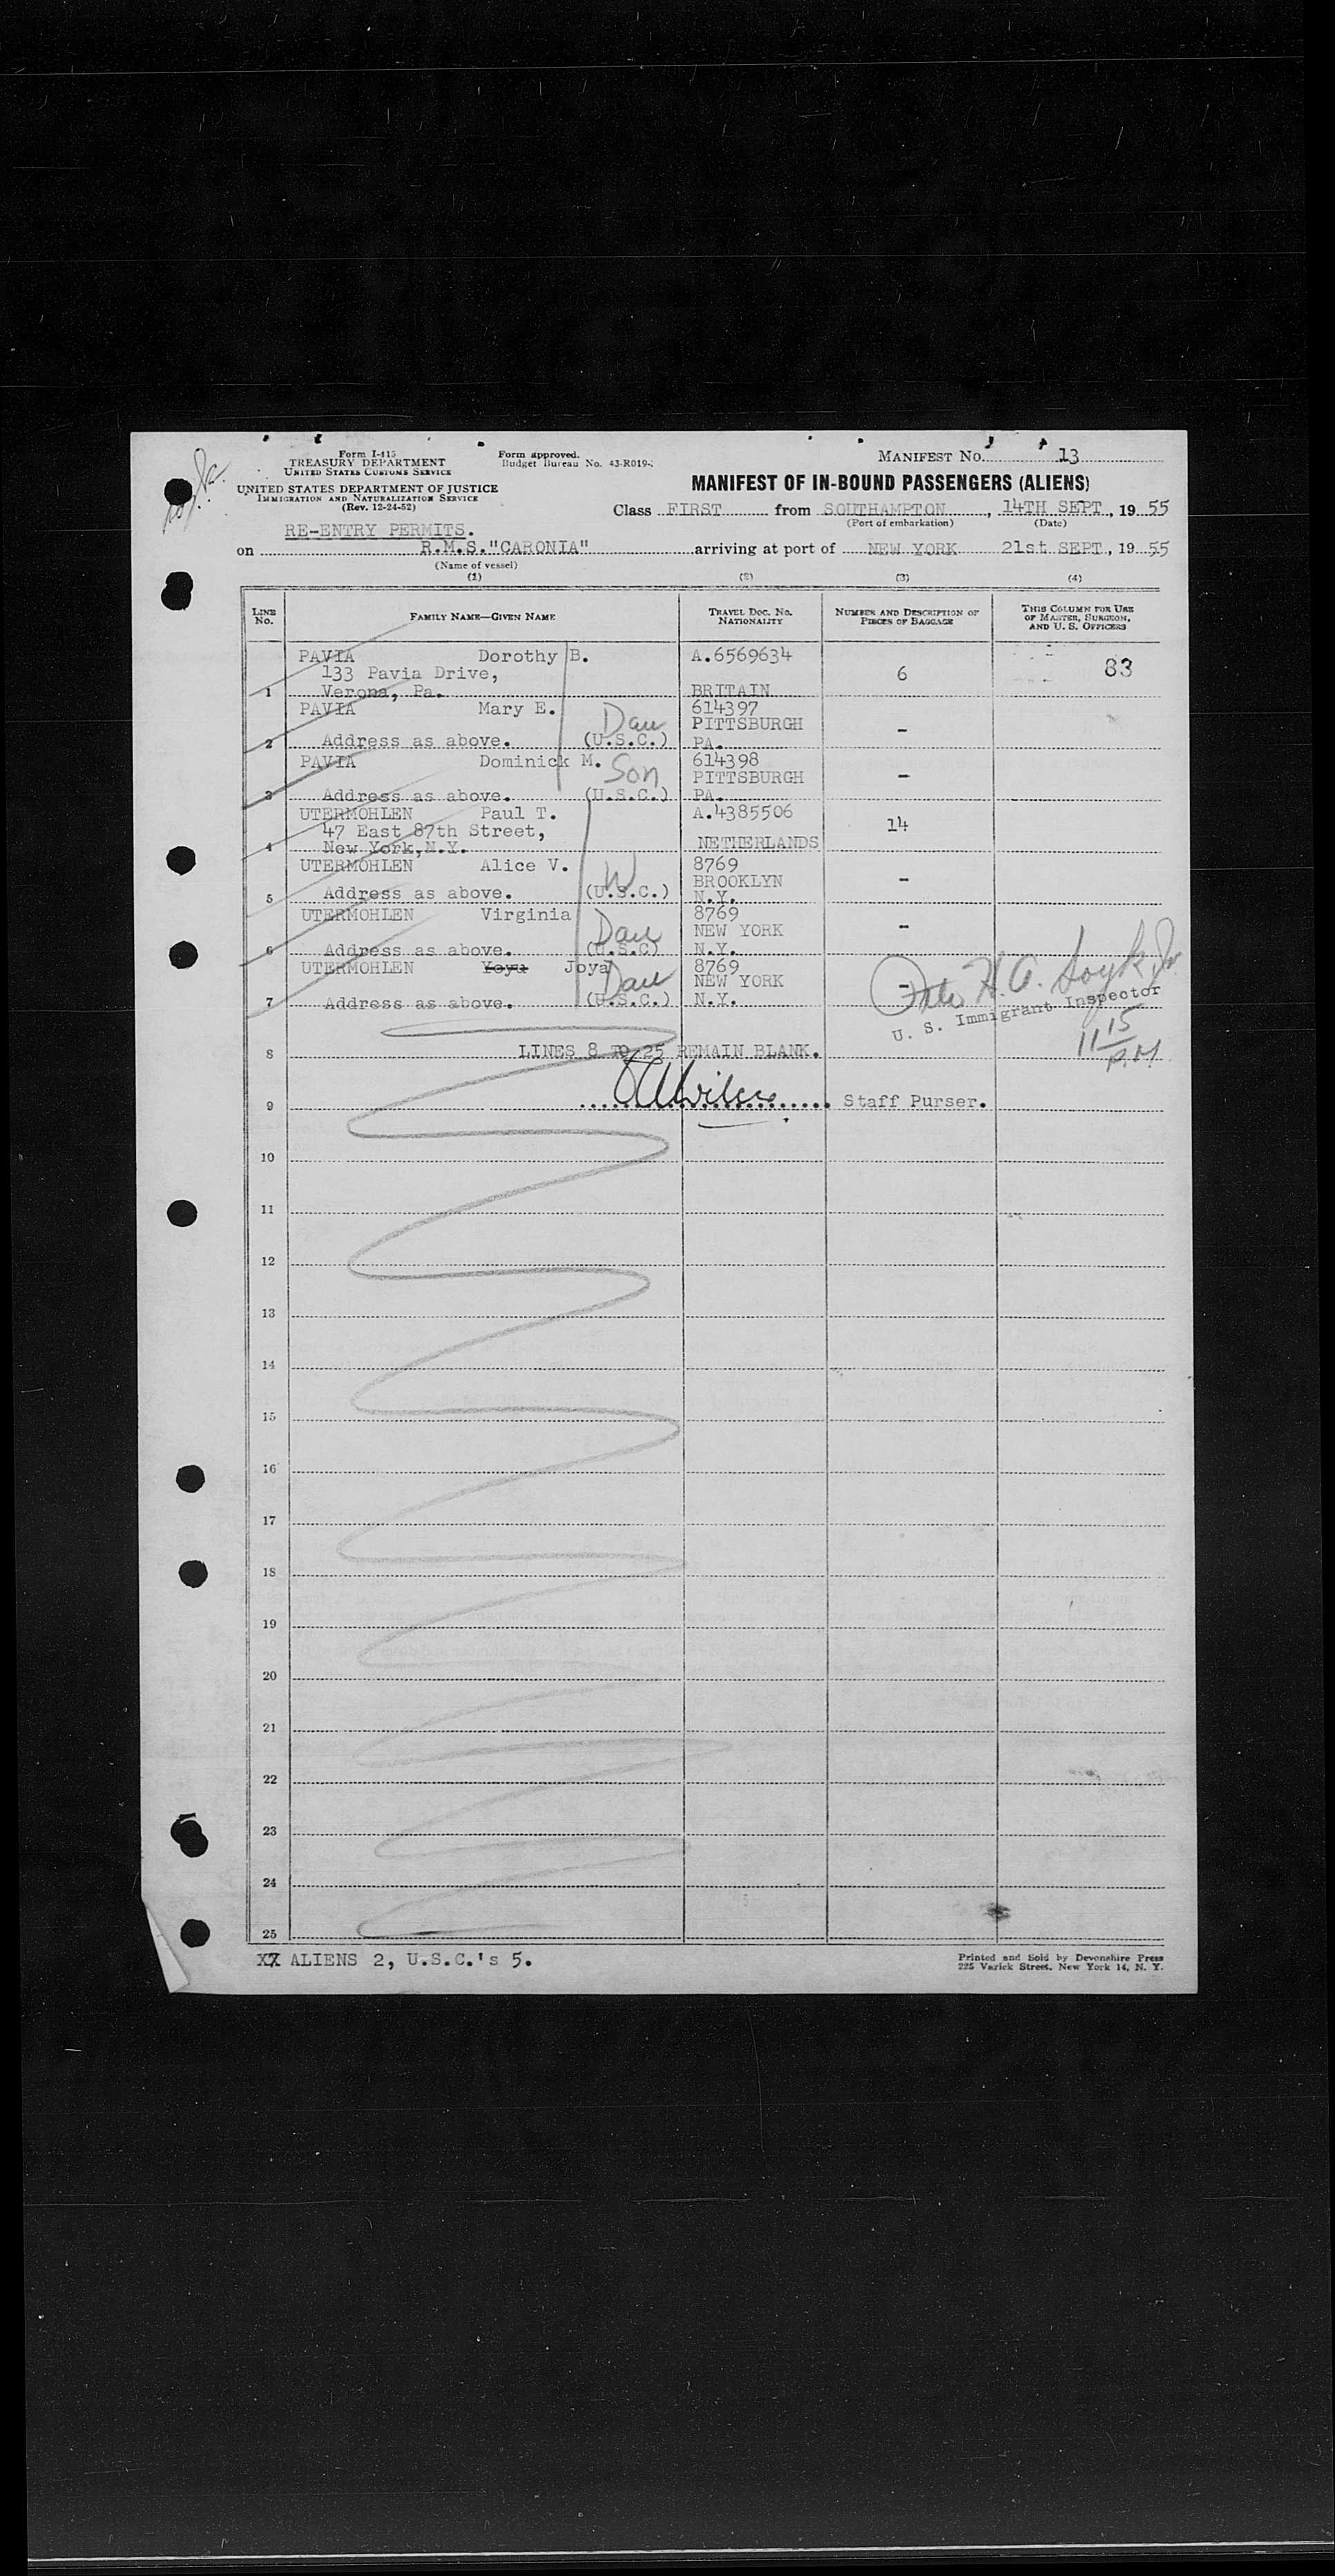 Form I-415
TREASURY DEPARTMENT
UNITED STATES CUSTOMS SERVICE
UNITED STATES DEPARTMENT OF JUSTICE
IMMIGRATION AND NATURALIZATION SERVICE
(Rev. 12-24-52)
Form approved.
Budget Bureau No. 43-R019-
MANIFEST No. 13
MANIFEST OF IN-BOUND PASSENGERS (ALIENS)
Class FIRST from SOUTHAMPTON, 14TH SEPT, 19 55
(Port of embarkation) (Date)
RE-ENTRY PERMITS.
on R.M.S."CARONIA" arriving at port of NEW YORK 21st SEPT, 19 55
(Name of vessel)
(1) (2) (3) (4)
LINE No. FAMILY NAME—GIVEN NAME TRAVEL DOC. No. NATIONALITY NUMBER AND DESCRIPTION OF PIECES OF BAGGAGE THIS COLUMN FOR USE OF MASTER, SURGEON, AND U. S. OFFICERS
PAVIA Dorothy B. A.6569634
133 Pavia Drive, 6 83
1 Verona, Pa. BRITAIN
PAVIA Mary E. 614397
Dau PITTSBURGH -
2 Address as above. (U.S.C.) PA.
PAVIA Dominick M. 614398
Son PITTSBURGH -
3 Address as above. (U.S.C.) PA.
UTERMOHLEN Paul T. A.4385506
47 East 87th Street, 14
4 New York,N.Y. NETHERLANDS
UTERMOHLEN Alice V. 8769
W BROOKLYN -
5 Address as above. (U.S.C.) N.Y.
UTERMOHLEN Virginia 8769
Dau NEW YORK -
6 Address as above. (U.S.C) N.Y.
UTERMOHLEN Yoyu Joya 8769
Dau NEW YORK -
7 Address as above. (U.S.C.) N.Y.
U. S. Immigrant Inspector
11 15 P.M
8 LINES 8 TO 25 REMAIN BLANK.
9 Staff Purser.
10
11
12
13
14
15
16
17
18
19
20
21
22
23
24
25
ALIENS 2, U.S.C.'s 5.
Printed and Sold by Devonshire Press
225 Varick Street, New York 14, N. Y.